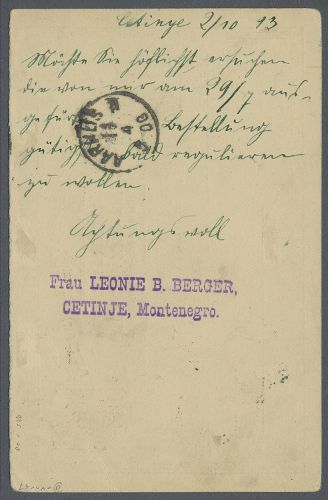 Cetinje 2/10 93
Möchte Sie höflichst ersuchen
die von mir am 29/7 aus-
gefür Bestellung
gütigst bald regulieren
zu wollen.
Achtungsvoll
Frau LEONIE B. BERGER,
CETINJE, Montenegro.